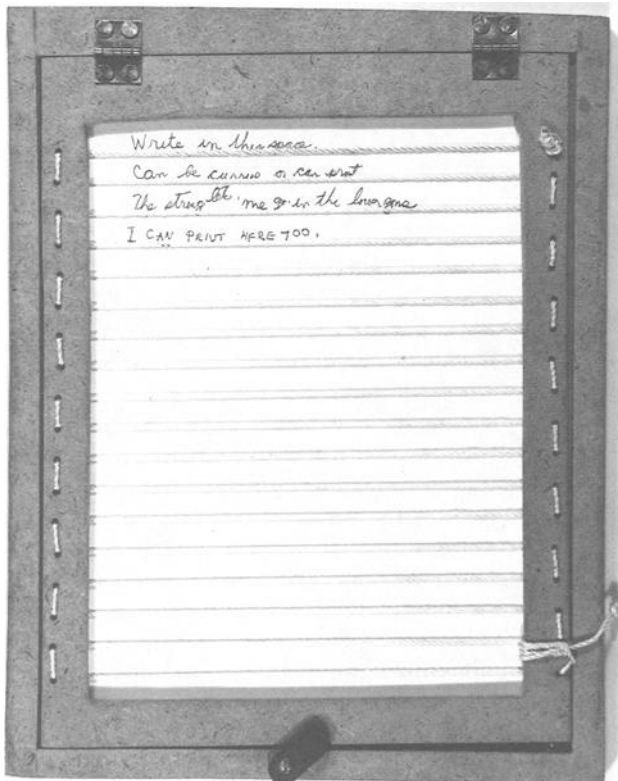 Write in this space.
Can be cursive or can print
The straight me go in the lower zone
I CAN PRINT HERE TOO.